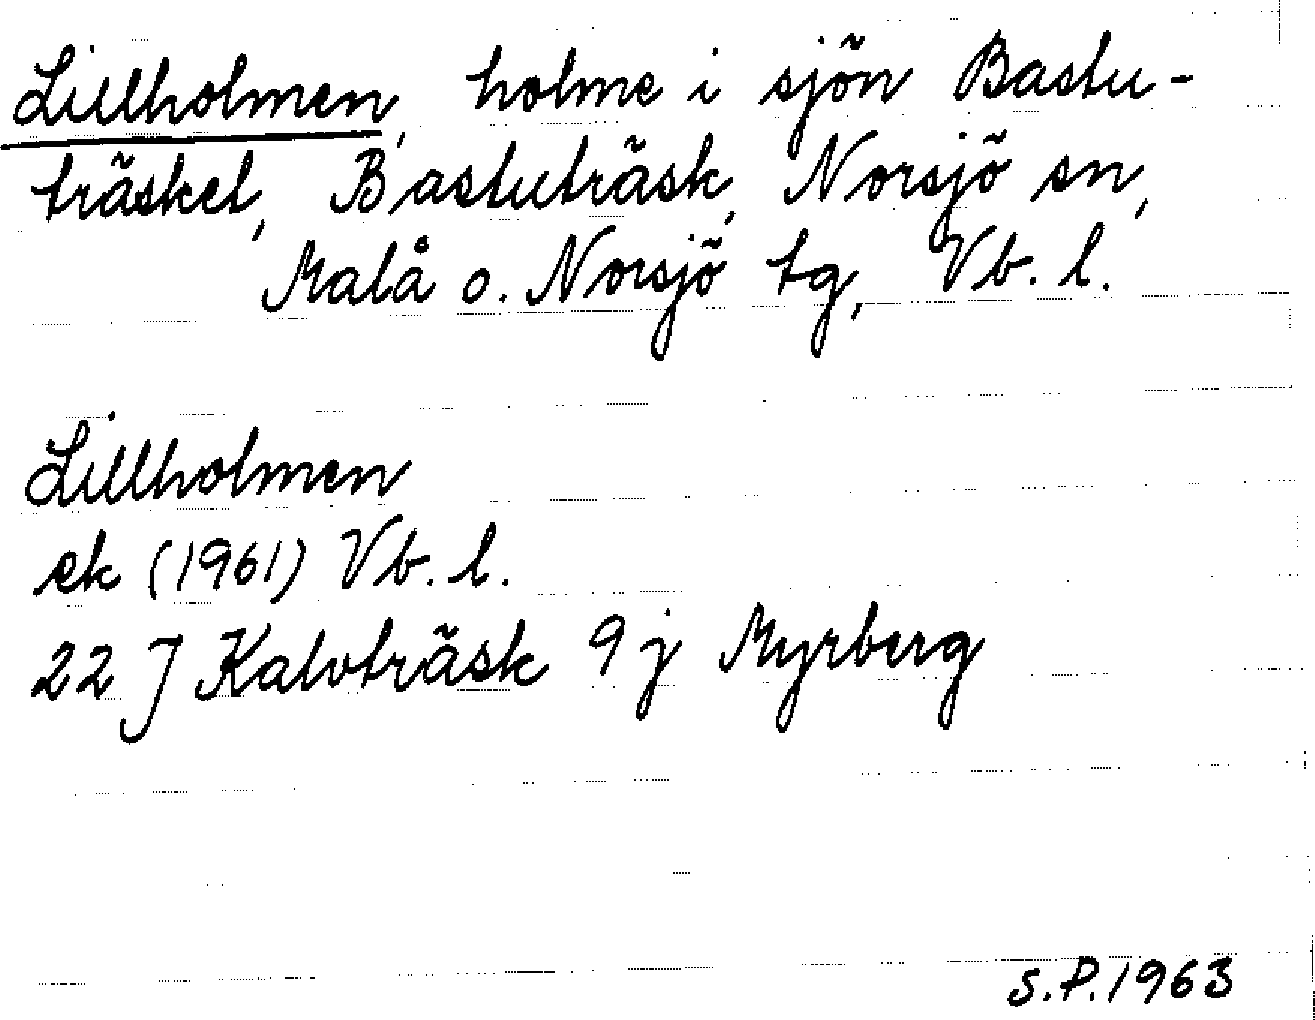 Lillholmen, holme i sjön Bastu-
träsket, Bastuträsk, Norsjö sn,
Malå o. Norsjö tg, Vb. l.
Lillholmen
ek (1961) Vb. l.
22 J Kalvträsk 9 j Myrberg
S.P. 1963